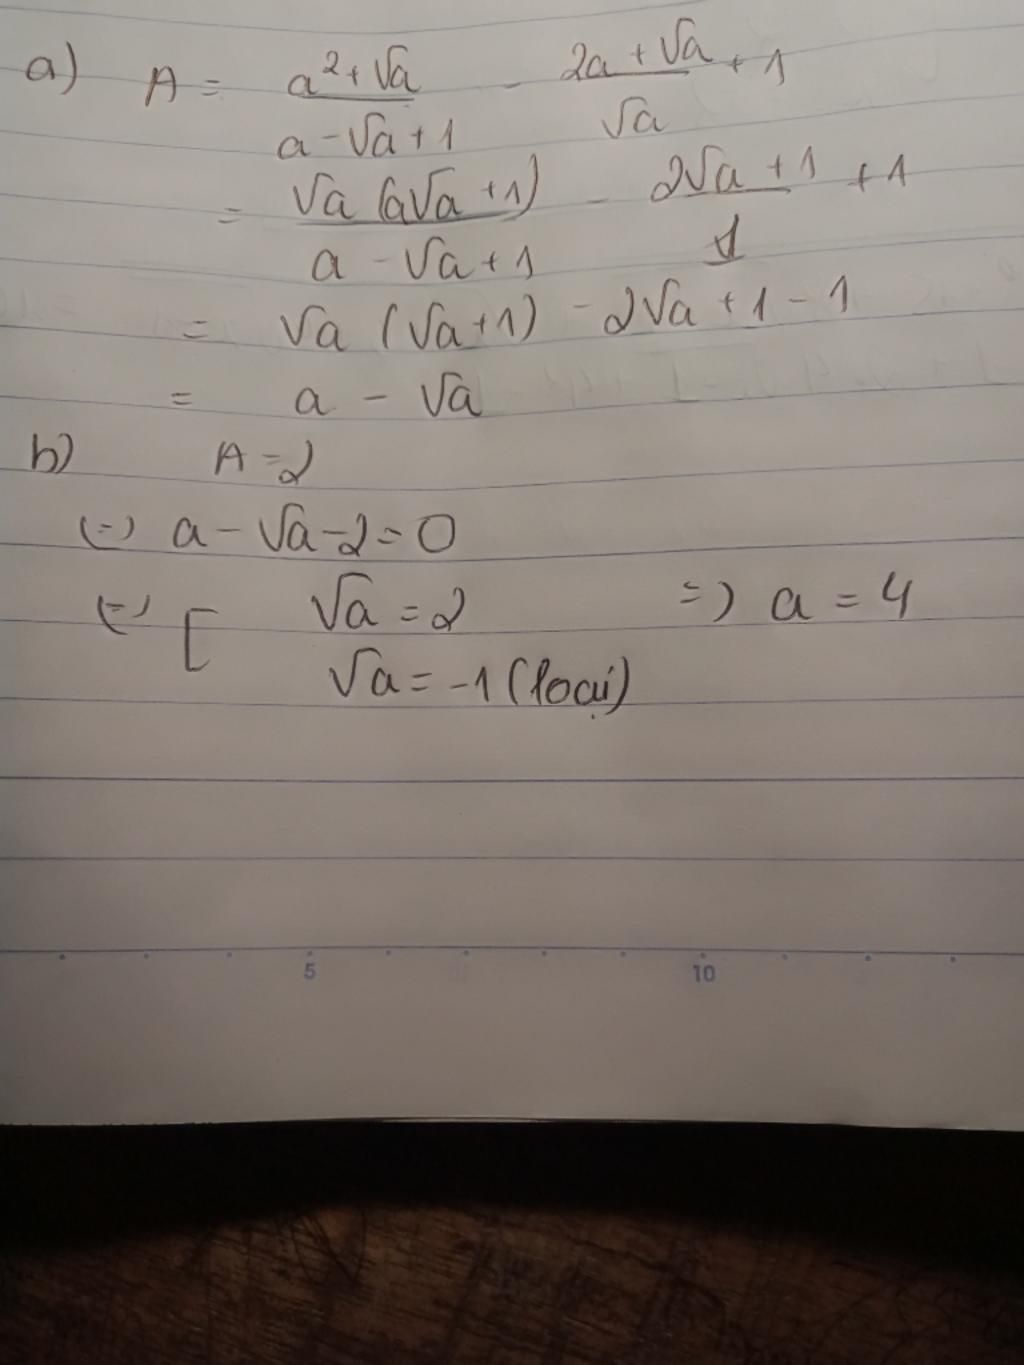 a) A = (a² + √a)/(a - √a + 1) - (2a + √a)/√a + 1
= √a (a√a + 1)/(a - √a + 1) - (2√a + 1)/1 + 1
= √a (√a + 1) - 2√a + 1 - 1
= a - √a
b) A = 2
(=) a - √a - 2 = 0
(=) [ √a = 2 => a = 4
√a = -1 (loại)
5 10